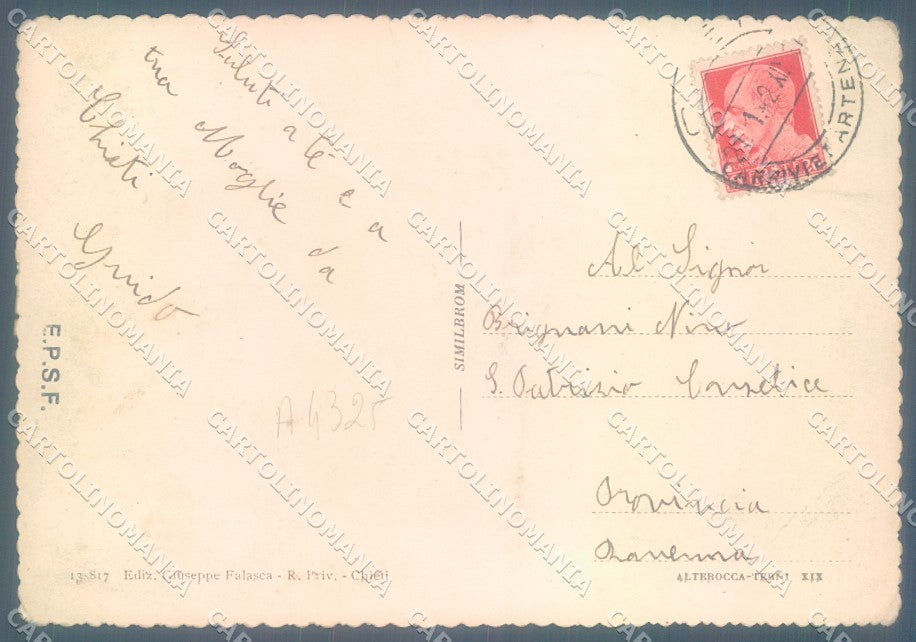 Saluti
a te e a
tua Moglie da
Chieti
Guido
E.P.S.F.
A 4325
SIMILBROM
Al Signor
Brignani Nino
S. Patrizio Conselice
Provincia
Ravenna
13-817 Ediz. Giuseppe Falasca - R. Priv. - Chieti
ALTEROCCA-TERNI XIX
CARTOLINOMANIA